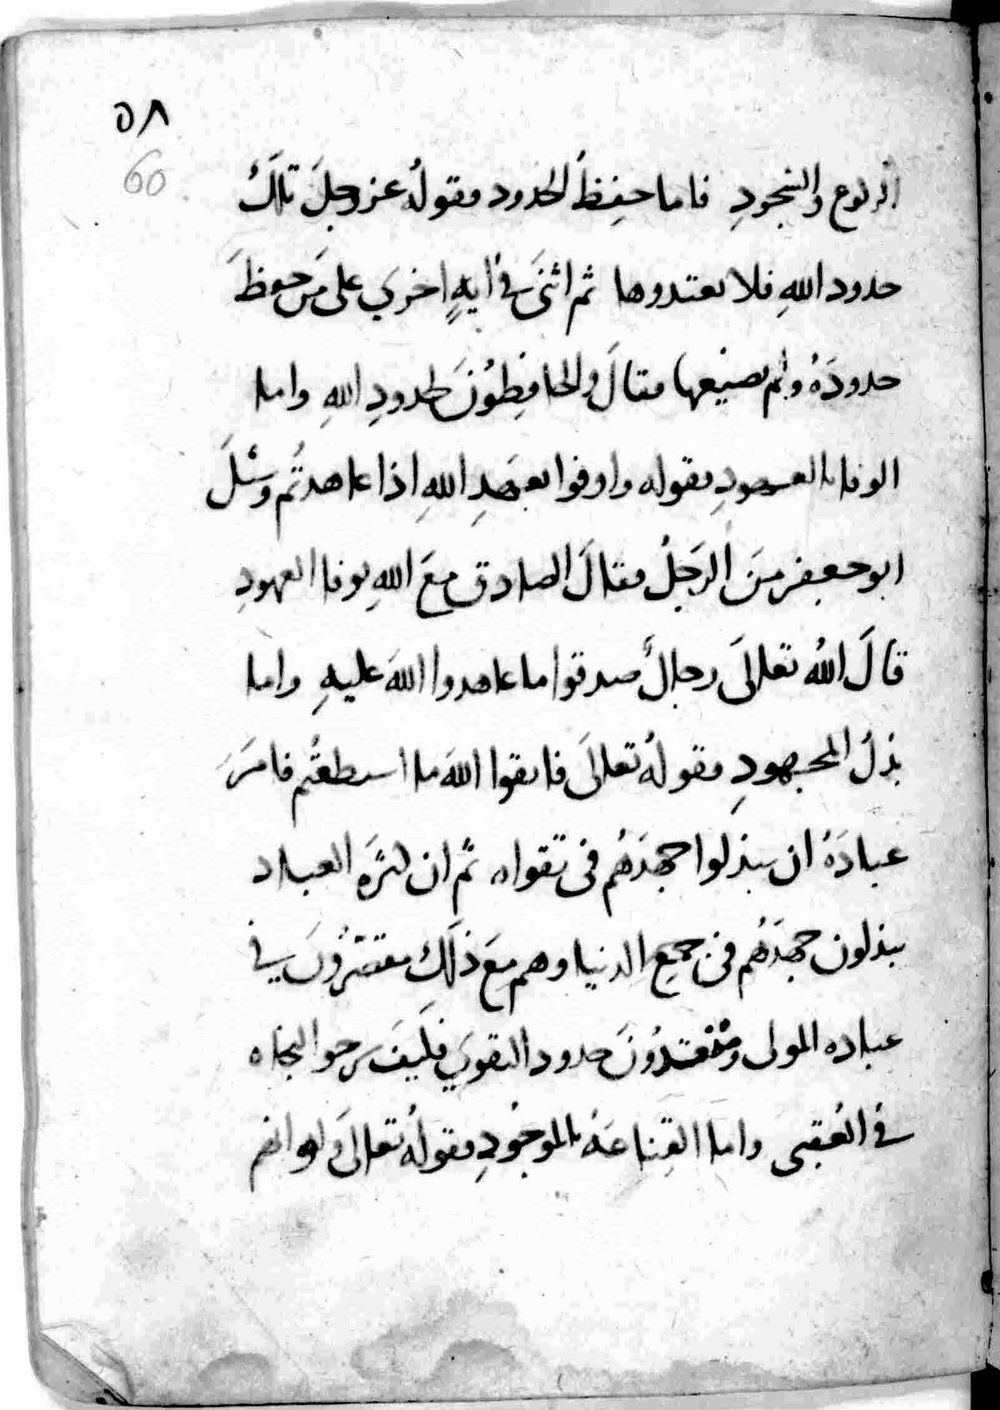 ٥٨
60
الركوع والسجودِ فاما حفِظُ الحدود فقولهُ عز وجلَ تلكَ
حدود اللهِ فلا تعتدوها ثم اثنى في ايهٍ اخرى على مَن حفظَ
حدودَهُ ولم يضيعها فقالَ والحافِظُونَ لحدودِ اللهِ واما
الوفا بالعهودِ فقوله واوفوا بعهدِ اللهِ اذا عاهدتُم وسُئلَ
ابو جعفر مَن الرجلُ فقالَ الصادق معَ اللهِ بوفا العهودِ
قالَ اللهُ تعالَى رجالٌ صدقوا ما عاهدوا اللهَ عليهِ واما
بذلُ المجهودِ فقولهُ تعالَى فاتقوا اللهَ ما استطعتُم فامرَ
عبادَهُ ان يبذلوا جهدَهُم في تقواه ثم ان كثرَه العباد
يبذلون جهدَهُم في جميع الدنيا وهم معَ ذلكَ مقتصرُونَ في
عباده المولى ومُفتقدُونَ حدود التقوى فكيفَ يرجوا النجاه
في العُقبى واما القِناعَهُ بالموجُودِ فقولهُ تعالَى ولو انهم